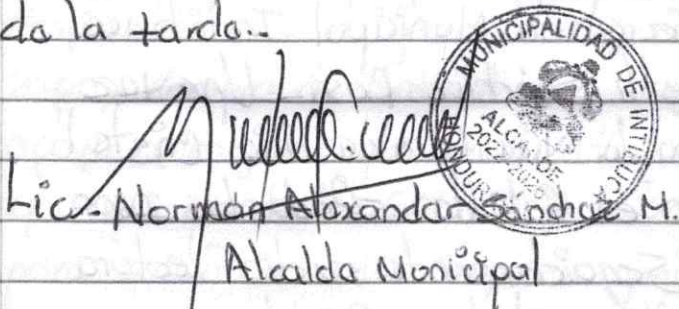 de la tarde..
MUNICIPALIDAD DE INTIBUCA
ALCALDE
2022-2026
HONDURAS
Lic. Norman Alexander Sanchez M.
Alcalde Municipal